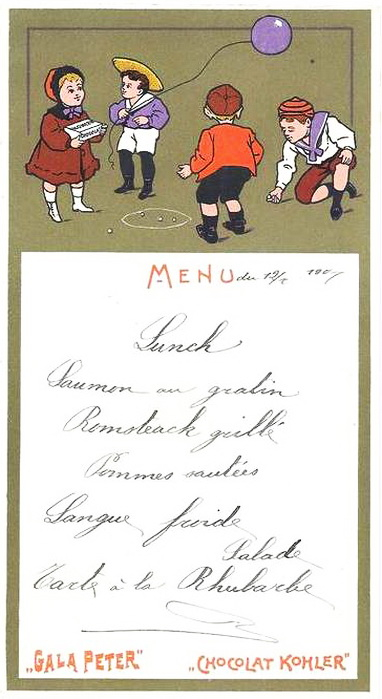 MENU du 19/5 1907
Lunch
Saumon au gratin
Romsteack grillé
Pommes sautées
Langue froide
Salade
Tarte à la Rhubarbe
„GALA PETER" „CHOCOLAT KOHLER"